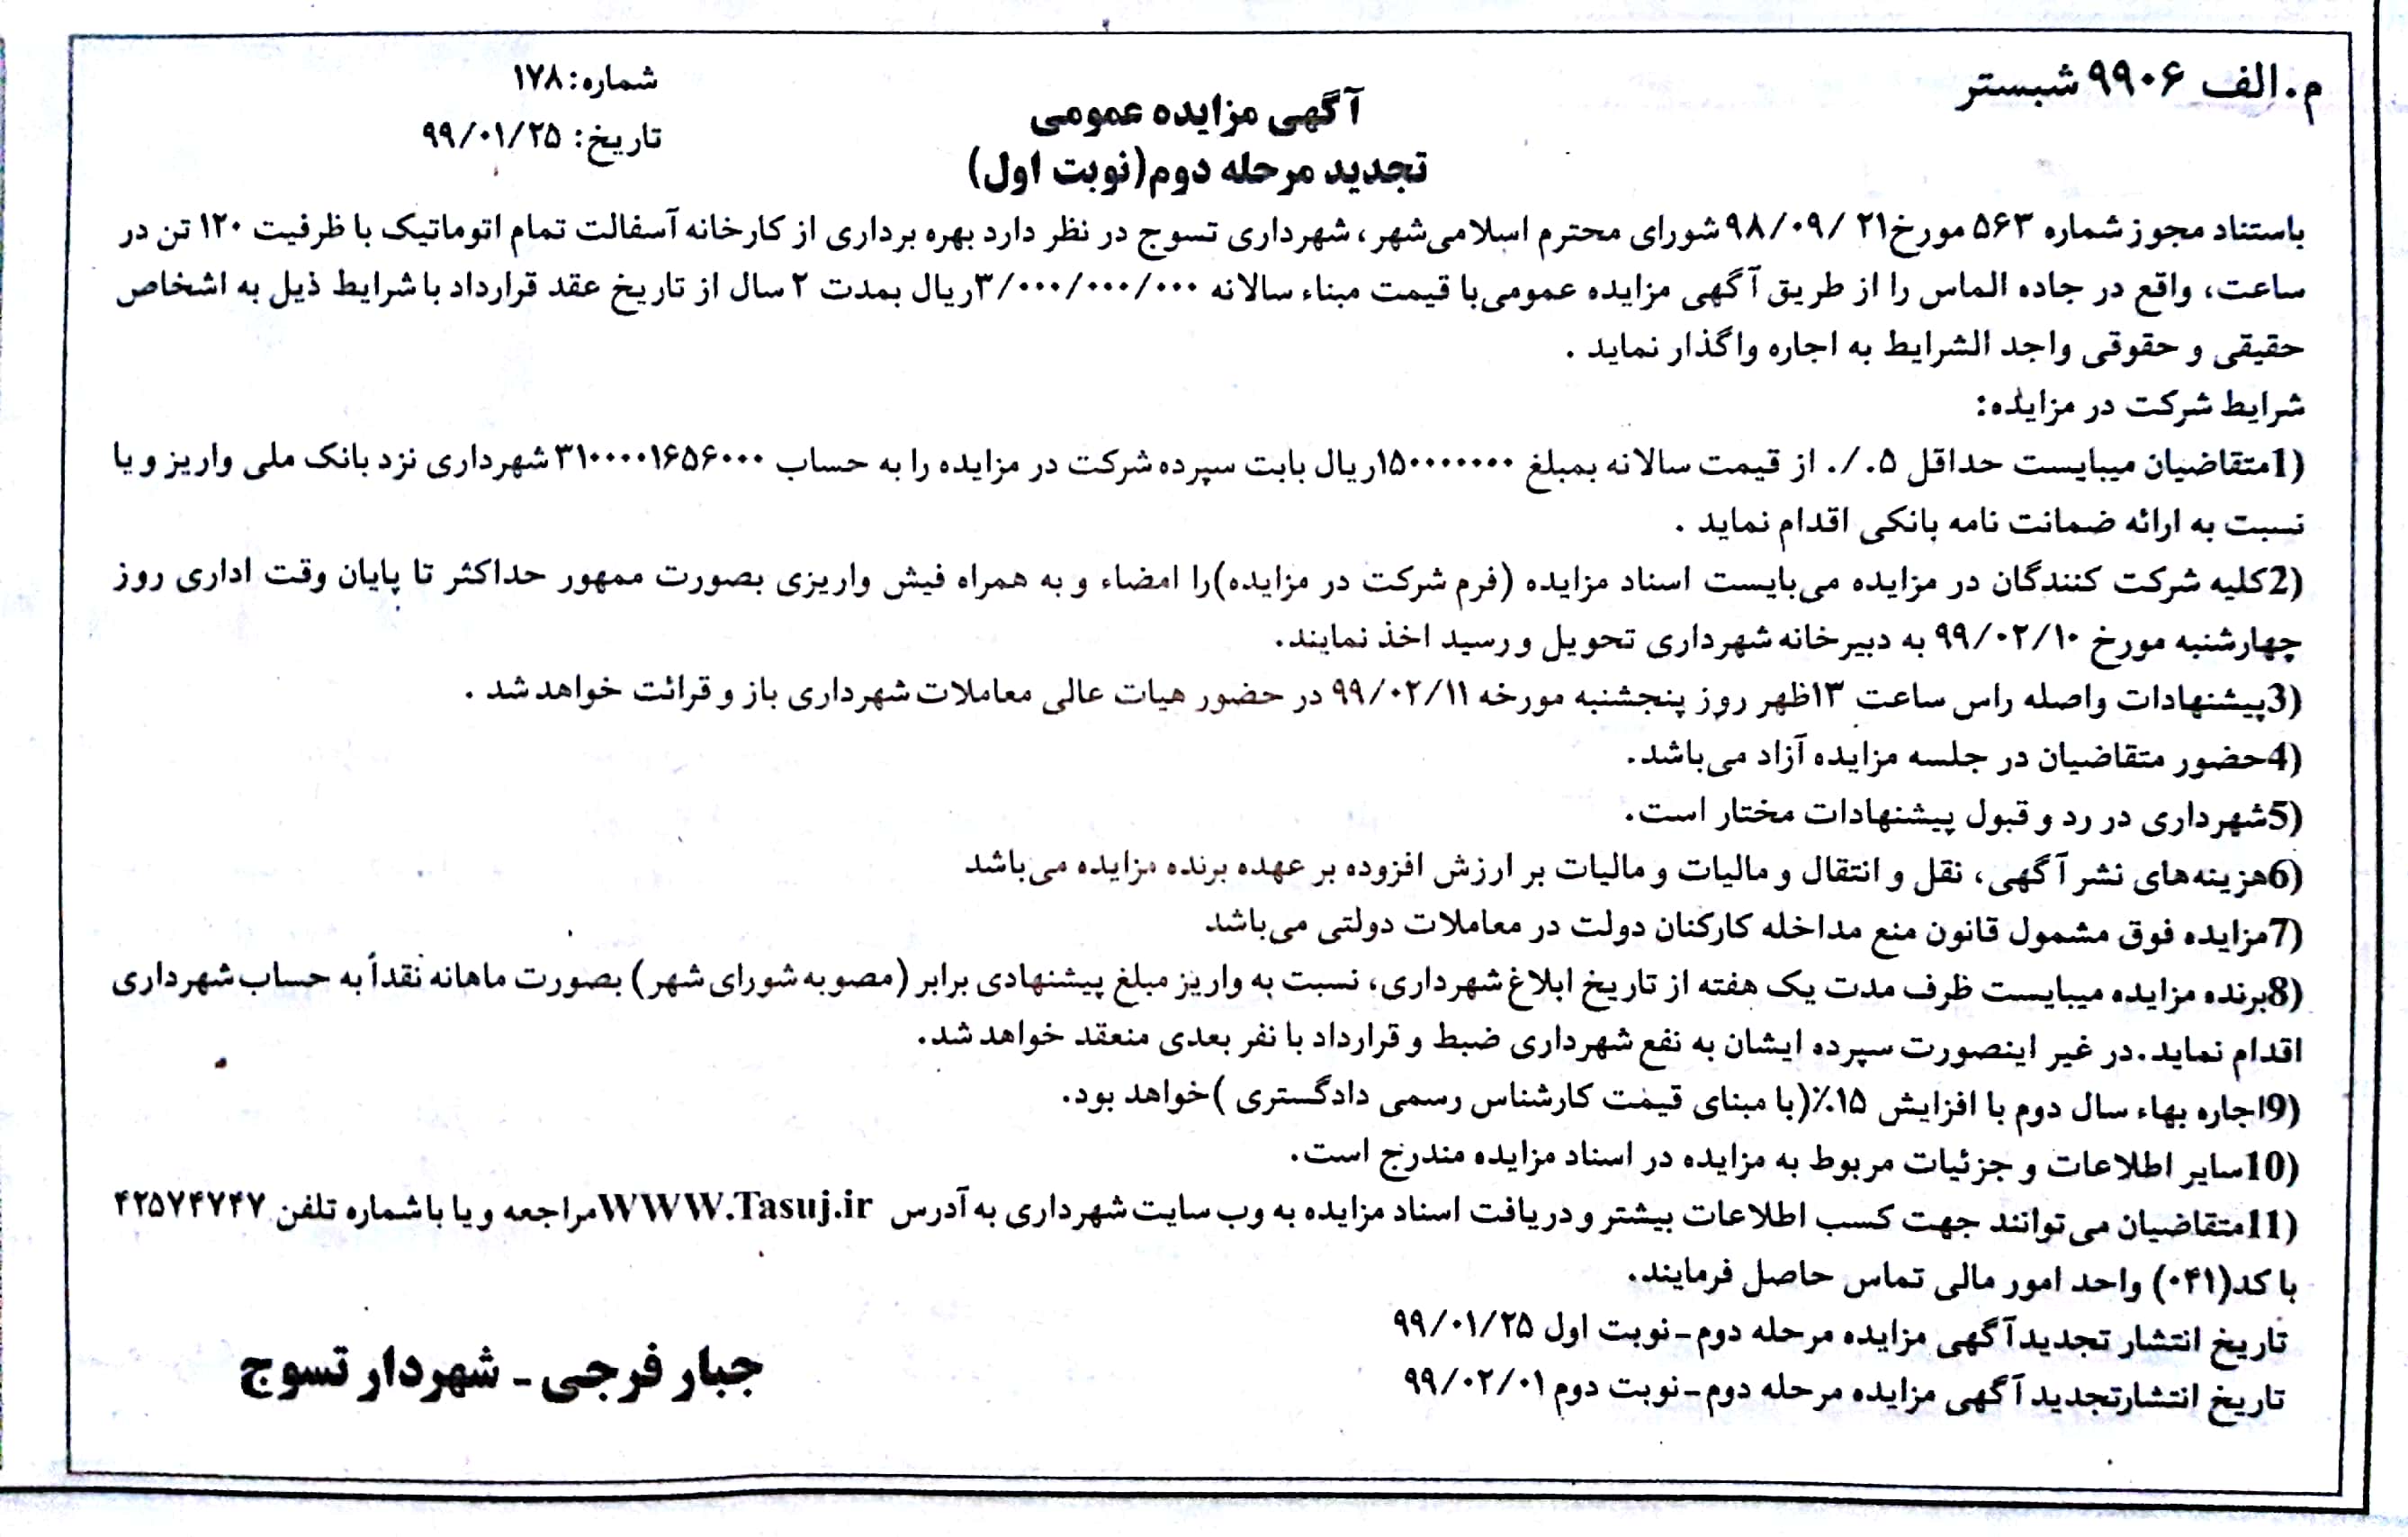 م.الف ۹۹۰۶ شبستر
شماره: ۱۷۸
تاریخ: ۹۹/۰۱/۲۵
آگهی مزایده عمومی
تجدید مرحله دوم(نوبت اول)
باستناد مجوز شماره ۵۶۳ مورخ۲۱ /۹۸/۰۹ شورای محترم اسلامی‌شهر، شهرداری تسوج در نظر دارد بهره برداری از کارخانه آسفالت تمام اتوماتیک با ظرفیت ۱۲۰ تن در
ساعت، واقع در جاده الماس را از طریق آگهی مزایده عمومی‌با قیمت مبناء سالانه ۳/۰۰۰/۰۰۰/۰۰۰ریال بمدت ۲ سال از تاریخ عقد قرارداد با شرایط ذیل به اشخاص
حقیقی و حقوقی واجد الشرایط به اجاره واگذار نماید .
شرایط شرکت در مزایده:
1)متقاضیان میبایست حداقل ۵ ./. از قیمت سالانه بمبلغ ۱۵۰۰۰۰۰۰۰ریال بابت سپرده شرکت در مزایده را به حساب ۳۱۰۰۰۰۱۶۵۶۰۰۰ شهرداری نزد بانک ملی واریز و یا
نسبت به ارائه ضمانت نامه بانکی اقدام نماید .
2)کلیه شرکت کنندگان در مزایده می‌بایست اسناد مزایده (فرم شرکت در مزایده)را امضاء و به همراه فیش واریزی بصورت ممهور حداکثر تا پایان وقت اداری روز
چهارشنبه مورخ ۹۹/۰۲/۱۰ به دبیرخانه شهرداری تحویل و رسید اخذ نمایند.
3)پیشنهادات واصله راس ساعت ۱۳ظهر روز پنجشنبه مورخه ۹۹/۰۲/۱۱ در حضور هیات عالی معاملات شهرداری باز و قرائت خواهد شد .
4)حضور متقاضیان در جلسه مزایده آزاد می‌باشد.
5)شهرداری در رد و قبول پیشنهادات مختار است.
6)هزینه‌های نشر آگهی، نقل و انتقال و مالیات و مالیات بر ارزش افزوده بر عهده برنده مزایده می‌باشد
7)مزایده فوق مشمول قانون منع مداخله کارکنان دولت در معاملات دولتی می‌باشد
8)برنده مزایده میبایست ظرف مدت یک هفته از تاریخ ابلاغ شهرداری، نسبت به واریز مبلغ پیشنهادی برابر (مصوبه شورای شهر) بصورت ماهانه نقداً به حساب شهرداری
اقدام نماید.در غیر اینصورت سپرده ایشان به نفع شهرداری ضبط و قرارداد با نفر بعدی منعقد خواهد شد.
9)اجاره بهاء سال دوم با افزایش ۱۵٪(با مبنای قیمت کارشناس رسمی دادگستری )خواهد بود.
10)سایر اطلاعات و جزئیات مربوط به مزایده در اسناد مزایده مندرج است.
11)متقاضیان می‌توانند جهت کسب اطلاعات بیشتر و دریافت اسناد مزایده به وب سایت شهرداری به آدرس WWW.Tasuj.irمراجعه و یا با شماره تلفن ۴۲۵۷۴۷۴۷
با کد(۰۴۱) واحد امور مالی تماس حاصل فرمایند.
تاریخ انتشار تجدیدآگهی مزایده مرحله دوم-نوبت اول ۹۹/۰۱/۲۵
تاریخ انتشارتجدید آگهی مزایده مرحله دوم-نوبت دوم ۹۹/۰۲/۰۱
جبار فرجی - شهردار تسوج